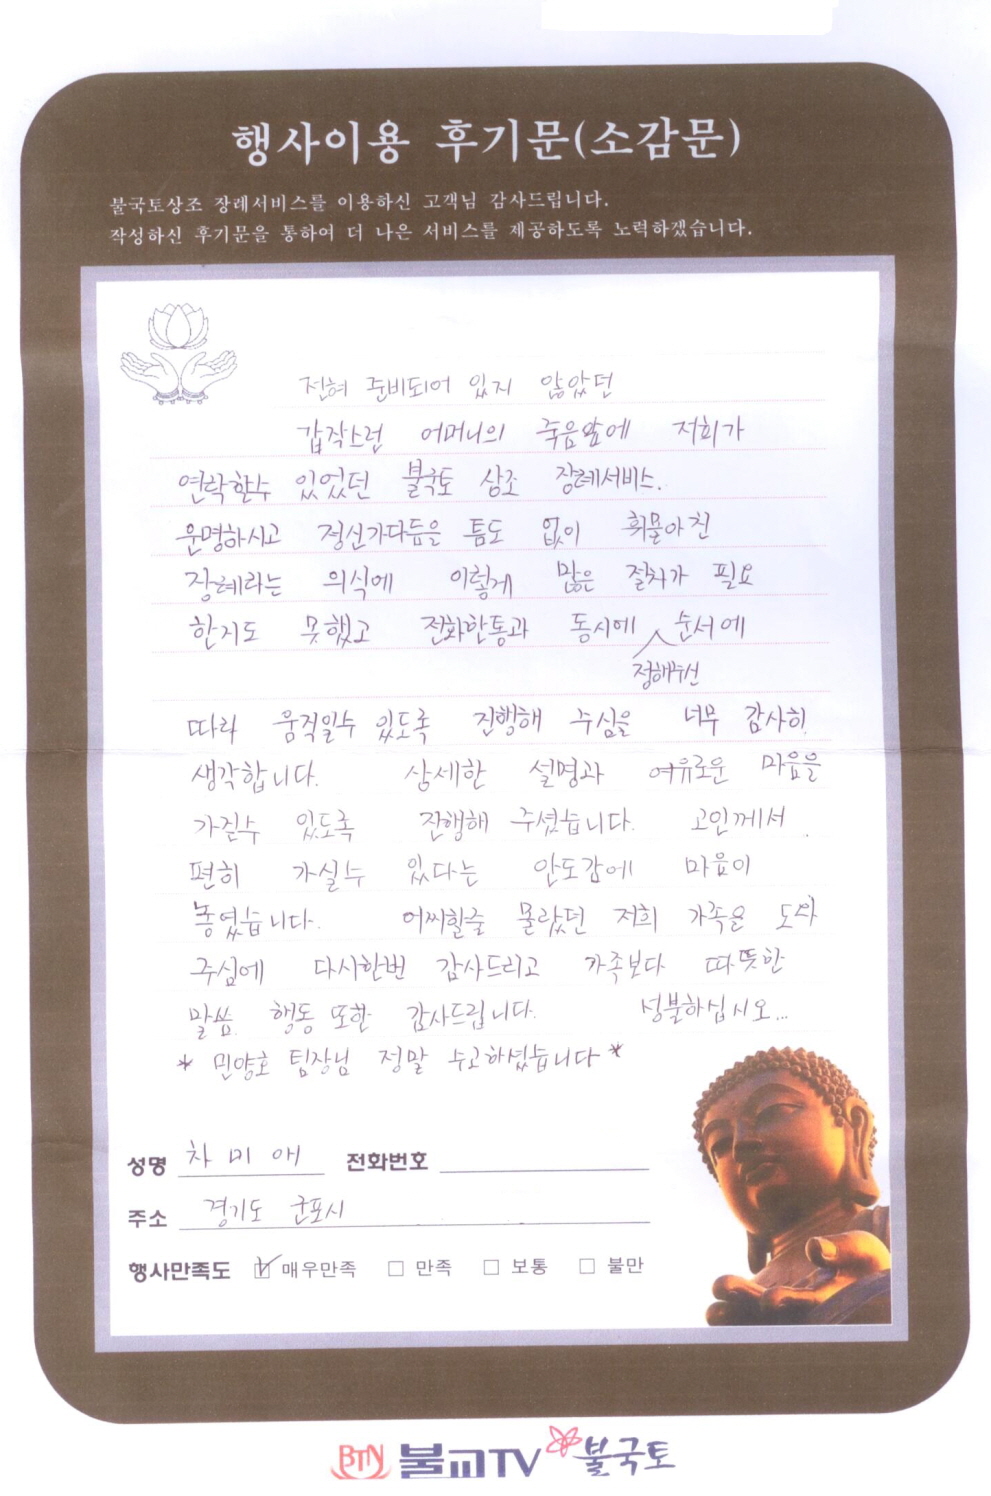 행사이용 후기문(소감문)
불국토상조 장례서비스를 이용하신 고객님 감사드립니다.
작성하신 후기문을 통하여 더 나은 서비스를 제공하도록 노력하겠습니다.
전혀 준비되어 있지 않았던
갑작스런 어머니의 죽음앞에 저희가
연락할수 있었던 불국토 상조 장례서비스.
운명하시고 정신가다듬을 틈도 없이 휘몰아친
장례라는 의식에 이렇게 많은 절차가 필요
한지도 못했고 전화한통과 동시에 순서에
정해주신
따라 움직일수 있도록 진행해 주심을 너무 감사히
생각합니다. 상세한 설명과 여유로운 마음을
가질수 있도록 진행해 주셨습니다. 고인께서
편히 가실수 있다는 안도감에 마음이
놓였습니다. 어찌할줄 몰랐던 저희 가족을 도와
주심에 다시한번 감사드리고 가족보다 따뜻한
말씀. 행동 또한 감사드립니다. 성불하십시오...
* 민양호 팀장님 정말 수고하셨습니다 *
성명 차미애 전화번호
주소 경기도 군포시
행사만족도 ☑ 매우만족 □ 만족 □ 보통 □ 불만
BTN 불교TV 불국토